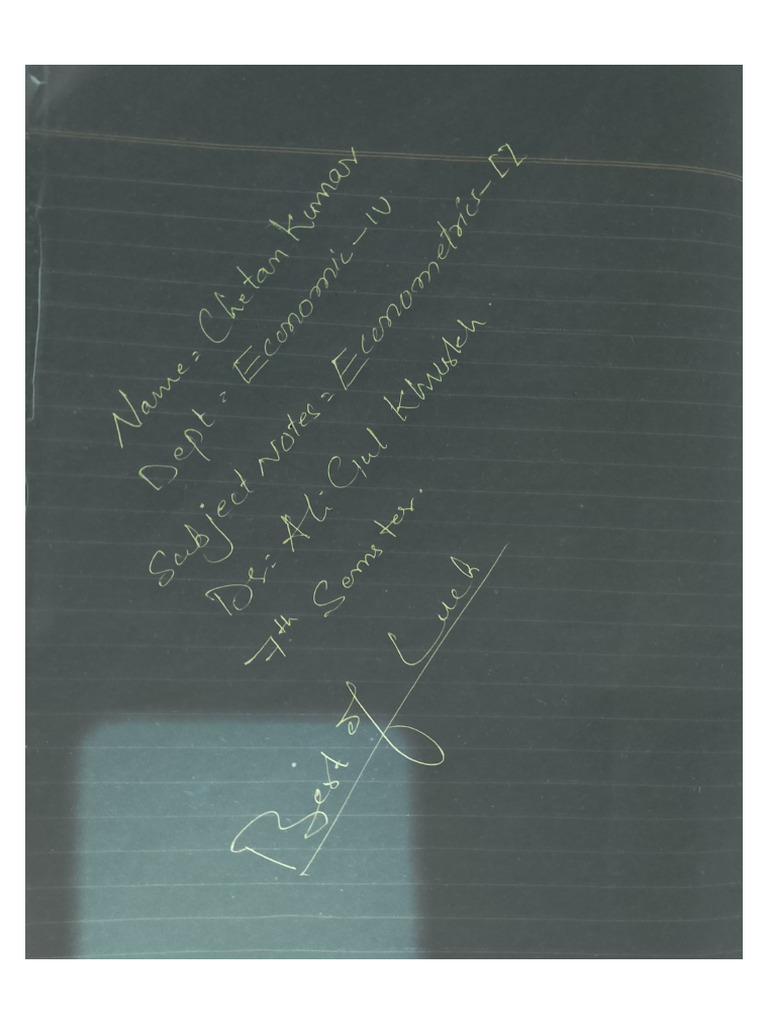 Name = Chetan Kumar
Dept = Economic - IV
Subject Notes = Econometrics - II
Dr: Ali Gul Khuskh.
7th Semster.
Best of Luck